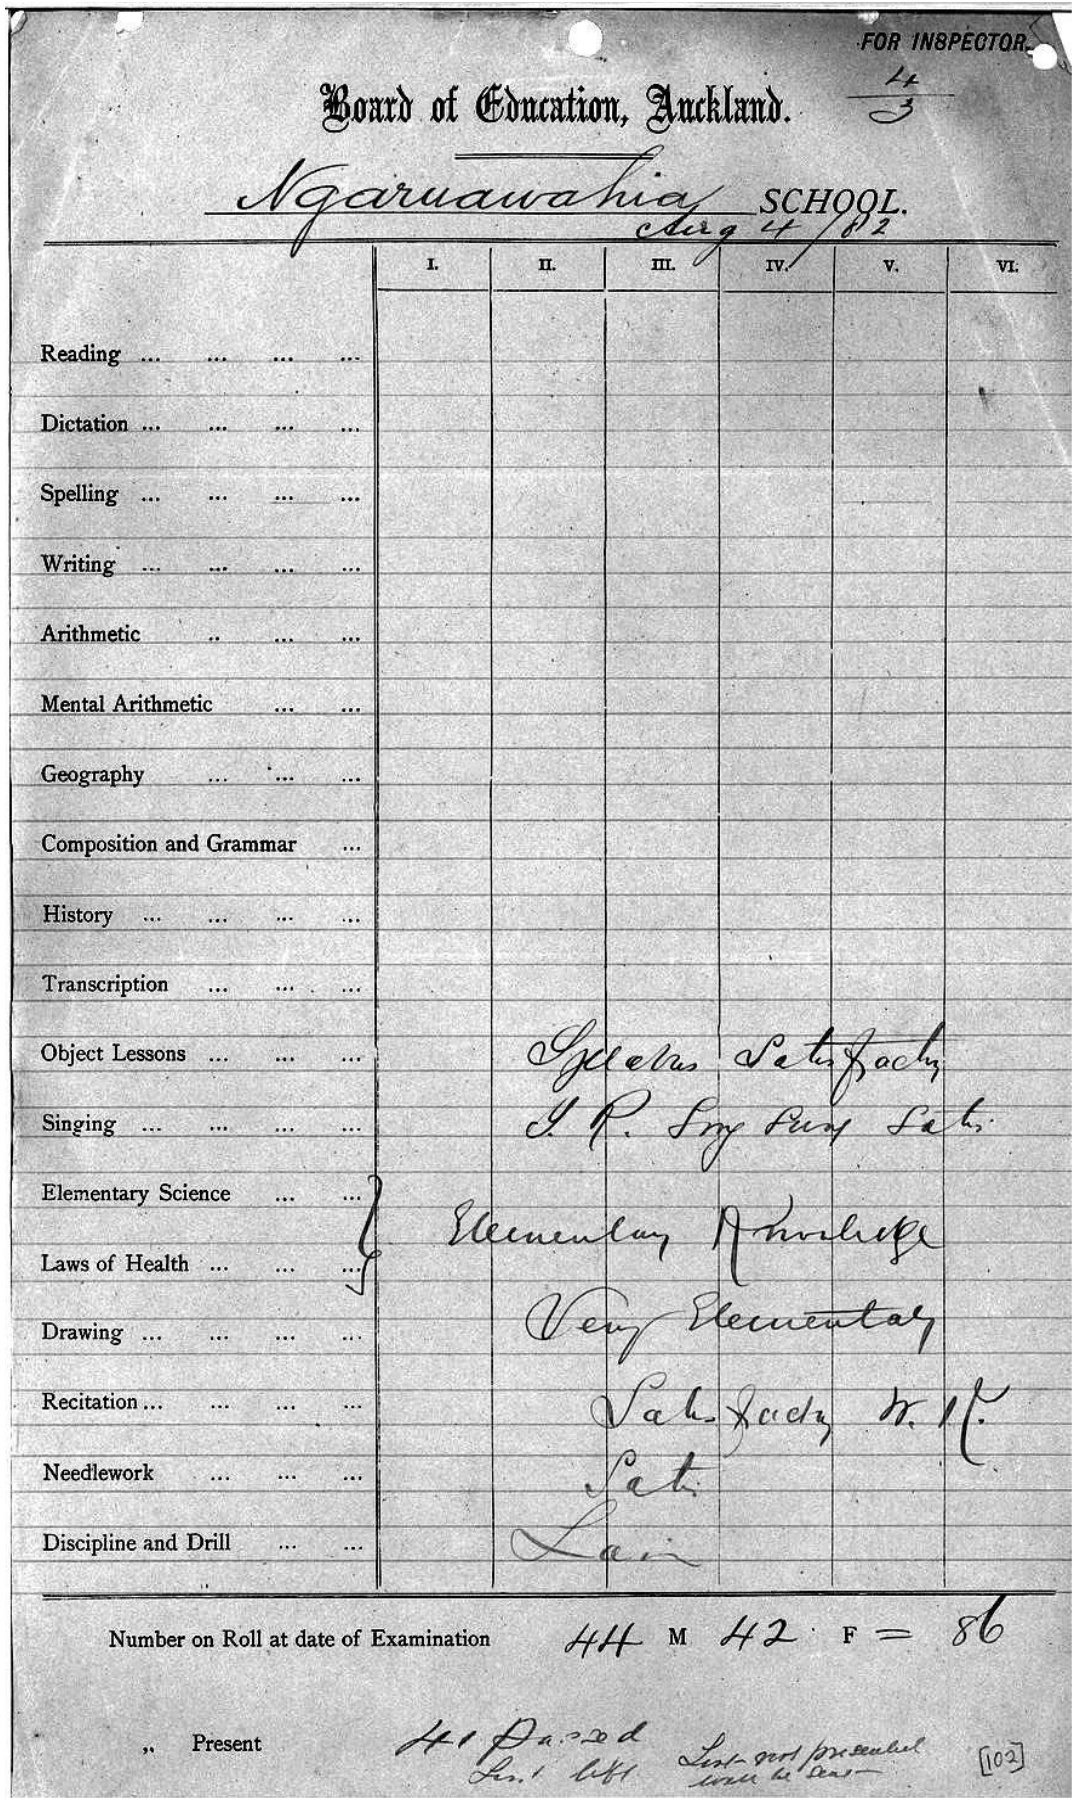 FOR INSPECTOR.
4
3
Board of Education, Auckland.
Ngaruawahia SCHOOL.
Aug 4/82
I. II. III. IV. V. VI.
Reading ... ... ... ...
Dictation ... ... ... ...
Spelling ... ... ... ...
Writing ... ... ... ...
Arithmetic .. ... ...
Mental Arithmetic ... ...
Geography ... ... ...
Composition and Grammar ...
History ... ... ... ...
Transcription ... ... ...
Object Lessons ... ... ... Syllabus Satisfactory
Singing ... ... ... ... Satis.
Elementary Science ... ...
Elementary Knowledge
Laws of Health ... ... ...
Drawing ... ... ... ... Very Elementary
Recitation ... ... ... ... Satisfactory
Needlework ... ... ... Satis.
Discipline and Drill ... ...
Number on Roll at date of Examination 44 M 42 F = 86
„ Present 41 Passed
List left List not presented [102]
will be sent